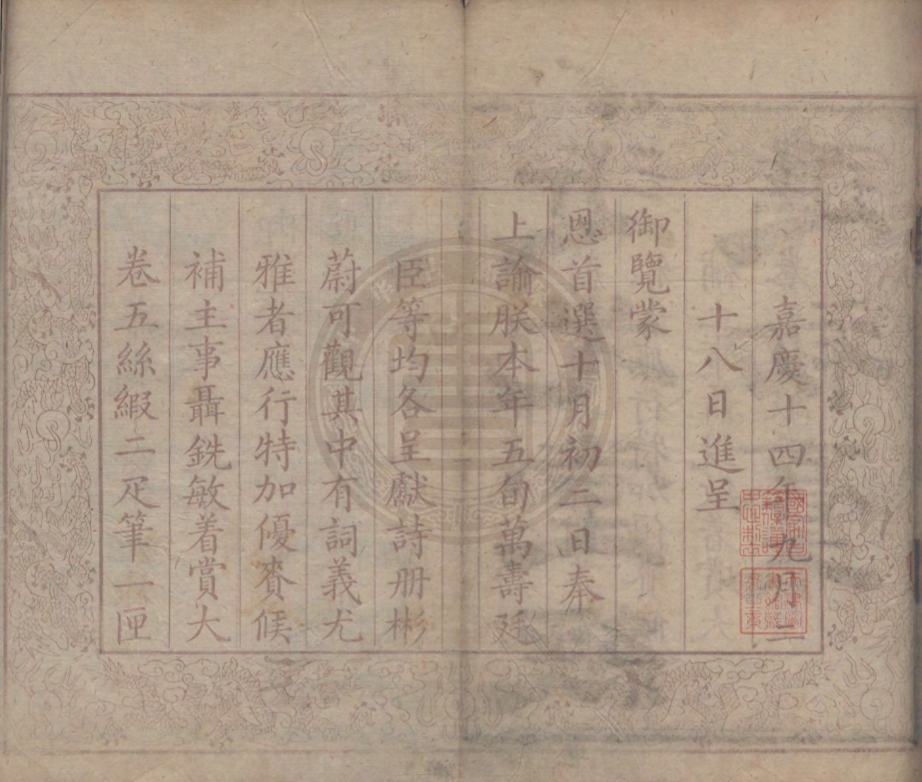 嘉慶十四年九月二
十八日進呈
御覽蒙
恩首選十月初二日奉
上諭朕本年五旬萬壽廷
臣等均各呈獻詩册彬
蔚可觀其中有詞義尤
雅者應行特加優賚候
補主事聶銑敏着賞大
卷五絲緞二疋筆一匣